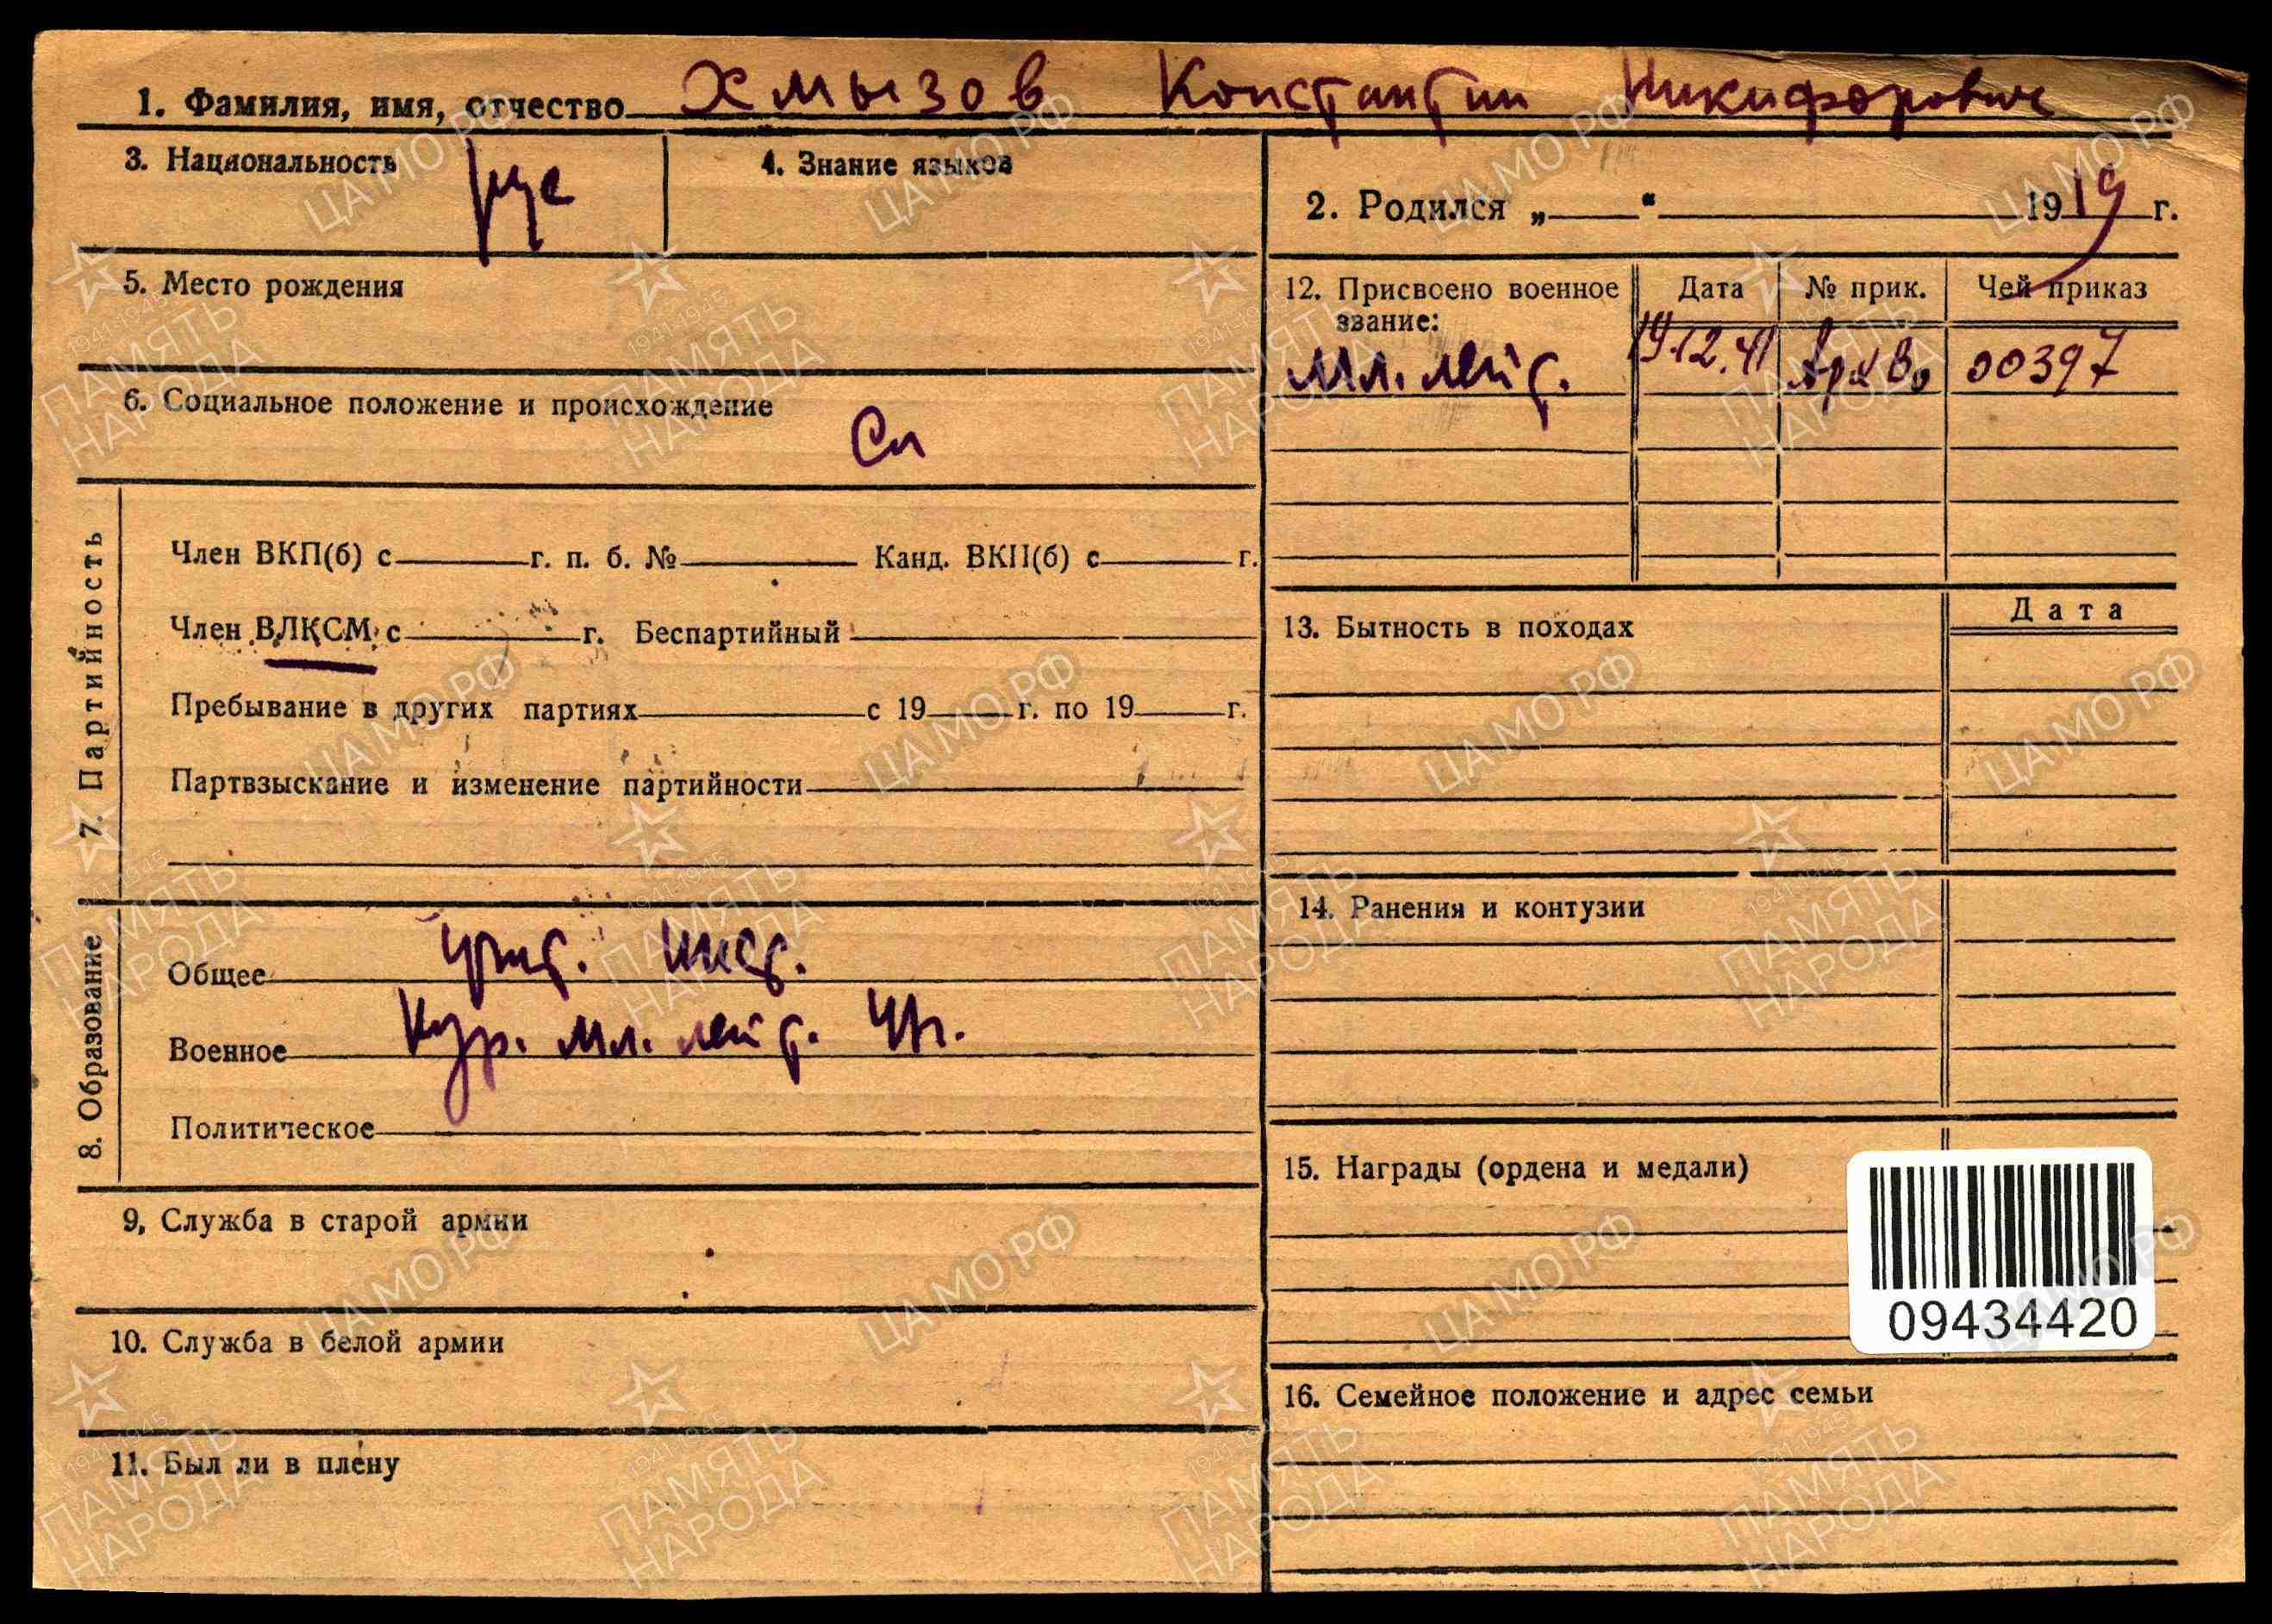 1. Фамилия, имя, отчество Хмызов Константин Никифорович
3. Национальность рус
4. Знание языков
2. Родился „ “ 1919 г.
5. Место рождения
6. Социальное положение и происхождение
Сл
7. Партийность
Член ВКП(б) с г. п. б. № Канд. ВКП(б) с г.
Член ВЛКСМ с г. Беспартийный
Пребывание в других партиях с 19 г. по 19 г.
Партвзыскание и изменение партийности
8. Образование
Общее инст.
Военное Кур. мл. лейт. 41г.
Политическое
9, Служба в старой армии
10. Служба в белой армии
11. Был ли в плену
12. Присвоено военное звание: Дата № прик. Чей приказ
мл. лейт. 19.12.41 00397
13. Бытность в походах Дата
14. Ранения и контузии
15. Награды (ордена и медали)
09434420
16. Семейное положение и адрес семьи
ЦАМО РФ
1941-1945
ПАМЯТЬ
НАРОДА